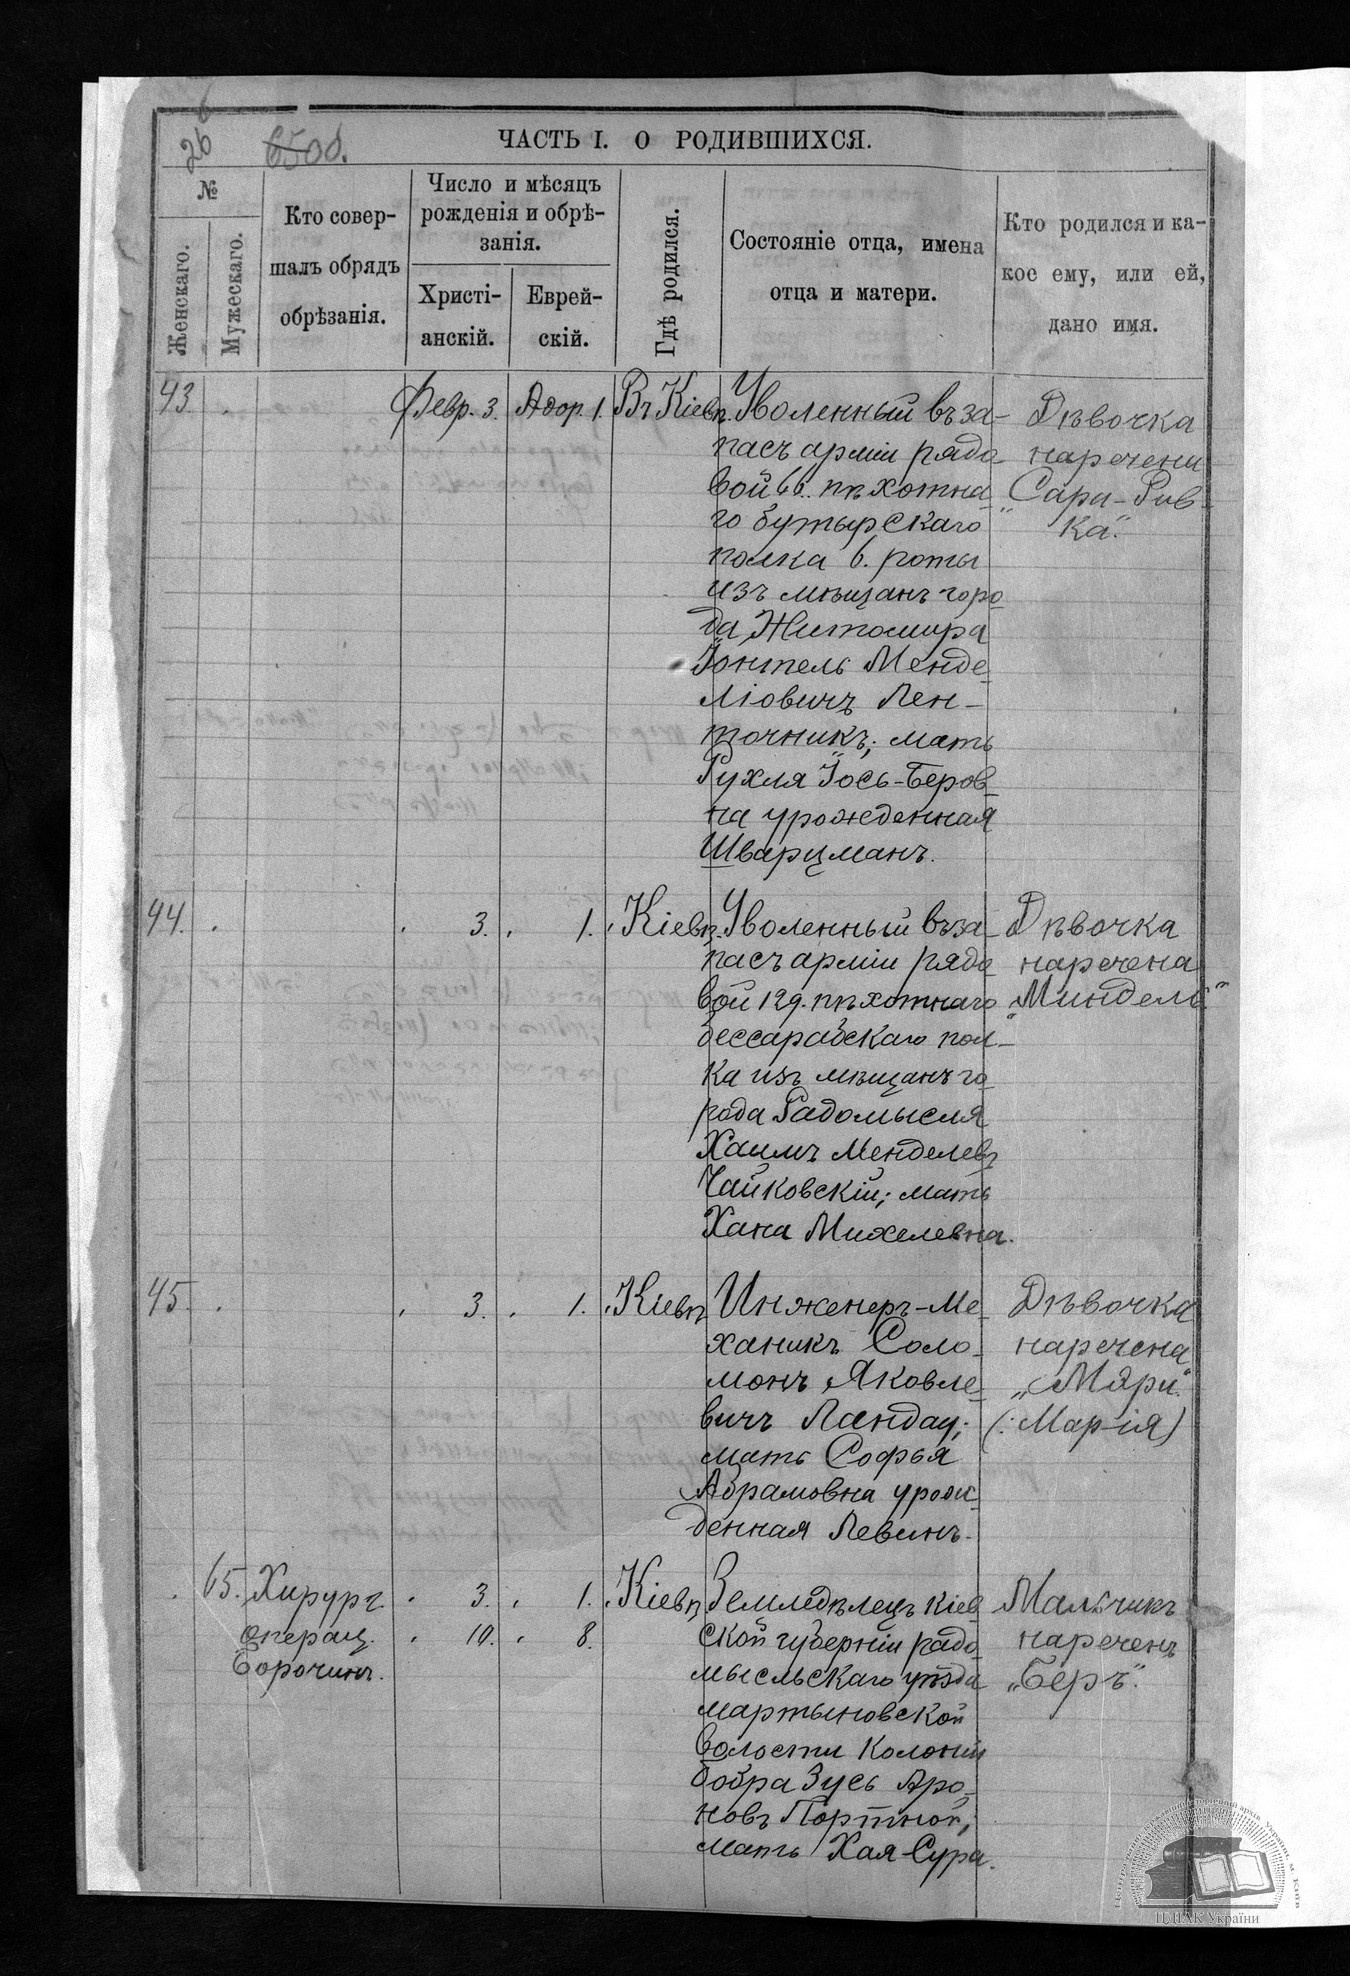 26
ЧАСТЬ I. О РОДИВШИХСЯ.
№
Женскаго.
Мужескаго.
Кто совер-
шалъ обрядъ
обрѣзанія.
Число и мѣсяцъ
рожденія и обрѣ-
занія.
Христі-
анскій.
Еврей-
скій.
Гдѣ родился.
Состояніе отца, имена
отца и матери.
Кто родился и ка-
кое ему, или ей,
дано имя.
43.
Февр. 3.
Адор. 1.
Въ Кіевѣ.
Уволенный въ за-
пасъ арміи рядо-
вой 66. пѣхотна-
го бутырскаго
полка 6. роты
изъ мѣщанъ горо-
да Житомира
Іонтель Менде-
ліовичъ Лен-
точникъ; мать
Рухля Іось-Беров-
на урожденная
Шварцманъ.
Дѣвочка
наречена
"Сара-Рив-
ка".
44.
" 3.
" 1.
" Кіевѣ.
Уволенный въ за-
пасъ арміи рядо-
вой 129. пѣхотнаго
бессарабскаго пол-
ка изъ мѣщанъ го-
рода Радомысля
Хаимъ Менделевъ
Чайковскій; мать
Хана Михелевна.
Дѣвочка
наречена
"Миндель"
45.
" 3.
" 1.
" Кіевѣ
Инженеръ-Ме-
ханикъ Соло-
монъ Яковле-
вичъ Ландау;
мать Софья
Абрамовна урож-
денная Левинъ.
Дѣвочка
наречена
„Мяри."
(: Марія)
65.
Хирург.
операц.
Борочинъ.
" 3.
" 10.
" 1.
" 8.
" Кіевѣ.
Земледѣлецъ Кіев
ской губерніи радо-
мысльскаго уѣзда
мартыновской
волости колоніи
бобра Зусь Аро-
новъ Портной;
мать Хая-Сура.
Мальчикъ
нареченъ
„Беръ".
ЦДІАК України